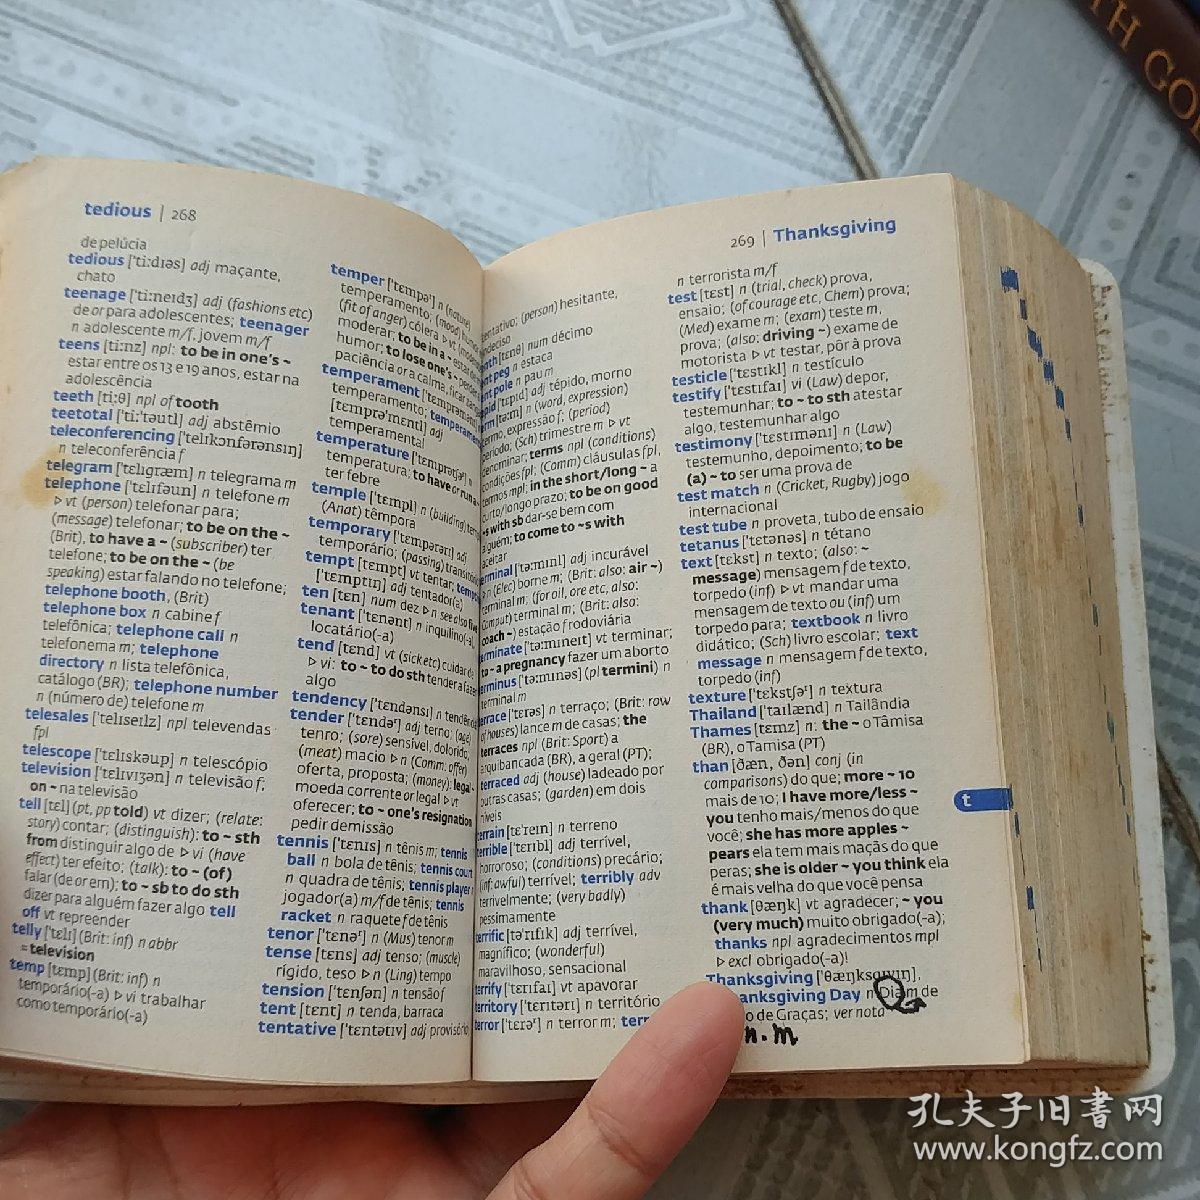 TH GOR
tedious | 268
de pelúcia
tedious ['ti:dɪəs] adj maçante,
chato
teenage ['ti:neɪdʒ] adj (fashions etc)
de or para adolescentes; teenager
n adolescente m/f, jovem m/f
teens [ti:nz] npl: to be in one's ~
estar entre os 13 e 19 anos, estar na
adolescência
teeth [ti:θ] npl of tooth
teetotal ['ti:'təutl] adj abstêmio
teleconferencing ['tɛlɪkɔnfərənsɪŋ]
n teleconferência f
telegram ['tɛlɪgræm] n telegrama m
telephone ['tɛlɪfəun] n telefone m
▷ vt (person) telefonar para;
(message) telefonar; to be on the ~
(Brit), to have a ~ (subscriber) ter
telefone; to be on the ~ (be
speaking) estar falando no telefone;
telephone booth, (Brit)
telephone box n cabine f
telefônica; telephone call n
telefonema m; telephone
directory n lista telefônica,
catálogo (BR); telephone number
n (número de) telefone m
telesales ['tɛlɪseɪlz] npl televendas
fpl
telescope ['tɛlɪskəup] n telescópio
television ['tɛlɪvɪʒən] n televisão f;
on ~ na televisão
tell [tɛl] (pt, pp told) vt dizer; (relate:
story) contar; (distinguish): to ~ sth
from distinguir algo de ▷ vi (have
effect) ter efeito; (talk): to ~ (of)
falar (de or em); to ~ sb to do sth
dizer para alguém fazer algo tell
off vt repreender
telly ['tɛlɪ] (Brit: inf) n abbr
= television
temp [tɛmp] (Brit: inf) n
temporário(-a) ▷ vi trabalhar
como temporário(-a)
temper ['tɛmpəʳ] n (nature)
temperamento; (mood) humor
(fit of anger) cólera ▷ vt
moderar; to be in a ~ estar de
humor; to lose one's ~ perder
paciência or a calma, ficar
temperament ['tɛmprəmənt]
temperamento; temperamental
[tɛmprə'mɛntl] adj
temperamental
temperature ['tɛmprətʃəʳ] n
temperatura; to have or run a
ter febre
temple ['tɛmpl] n (building)
(Anat) têmpora
temporary ['tɛmpərərɪ] adj
temporário; (passing) transitório
tempt [tɛmpt] vt tentar;
['tɛmptɪŋ] adj tentador(a)
ten [tɛn] num dez ▷ n see also five
tenant ['tɛnənt] n inquilino(-a)
locatário(-a)
tend [tɛnd] vt (sick etc) cuidar de
▷ vi: to ~ to do sth tender a fazer
algo
tendency ['tɛndənsɪ] n tendência
tender ['tɛndəʳ] adj terno; (age)
tenro; (sore) sensível, dolorido;
(meat) macio ▷ n (Comm: offer)
oferta, proposta; (money): legal ~
moeda corrente or legal ▷ vt
oferecer; to ~ one's resignation
pedir demissão
tennis ['tɛnɪs] n tênis m; tennis
ball n bola de tênis; tennis court
n quadra de tênis; tennis player
jogador(a) m/f de tênis; tennis
racket n raquete f de tênis
tenor ['tɛnəʳ] n (Mus) tenor m
tense [tɛns] adj tenso; (muscle)
rígido, teso ▷ n (Ling) tempo
tension ['tɛnʃən] n tensão f
tent [tɛnt] n tenda, barraca
tentative ['tɛntətɪv] adj provisório
269 | Thanksgiving
tentativo; (person) hesitante,
indeciso
num décimo
tent peg n estaca
tent pole n pau m
['tɛpɪd] adj tépido, morno
[tə:m] n (word, expression)
termo, expressão f; (period)
período; (Sch) trimestre m ▷ vt
denominar; terms npl (conditions)
condições fpl; (Comm) cláusulas fpl,
termos mpl; in the short/long ~ a
curto/longo prazo; to be on good
~s with sb dar-se bem com
alguém; to come to ~s with
aceitar
terminal ['tə:mɪnl] adj incurável
▷ n (Elec) borne m; (Brit: also: air ~)
terminal m; (for oil, ore etc, also:
Comput) terminal m; (Brit: also:
coach ~) estação f rodoviária
terminate ['tə:mɪneɪt] vt terminar;
to ~ a pregnancy fazer um aborto
terminus ['tə:mɪnəs] (pl termini) n
terminal m
terrace ['tɛrəs] n terraço; (Brit: row
of houses) lance m de casas; the
terraces npl (Brit: Sport) a
arquibancada (BR), a geral (PT);
terraced adj (house) ladeado por
outras casas; (garden) em dois
níveis
terrain [tɛ'reɪn] n terreno
terrible ['tɛrɪbl] adj terrível,
horroroso; (conditions) precário;
(inf: awful) terrível; terribly adv
terrivelmente; (very badly)
pessimamente
terrific [tə'rɪfɪk] adj terrível,
magnífico; (wonderful)
maravilhoso, sensacional
terrify ['tɛrɪfaɪ] vt apavorar
territory ['tɛrɪtərɪ] n território
terror ['tɛrəʳ] n terror m;
n terrorista m/f
test [tɛst] n (trial, check) prova,
ensaio; (of courage etc, Chem) prova;
(Med) exame m; (exam) teste m,
prova; (also: driving ~) exame de
motorista ▷ vt testar, pôr à prova
testicle ['tɛstɪkl] n testículo
testify ['tɛstɪfaɪ] vi (Law) depor,
testemunhar; to ~ to sth atestar
algo, testemunhar algo
testimony ['tɛstɪmənɪ] n (Law)
testemunho, depoimento; to be
(a) ~ to ser uma prova de
test match n (Cricket, Rugby) jogo
internacional
test tube n proveta, tubo de ensaio
tetanus ['tɛtənəs] n tétano
text [tɛkst] n texto; (also: ~
message) mensagem f de texto,
torpedo (inf) ▷ vt mandar uma
mensagem de texto ou (inf) um
torpedo para; textbook n livro
didático; (Sch) livro escolar; text
message n mensagem f de texto,
torpedo (inf)
texture ['tɛkstʃəʳ] n textura
Thailand ['taɪlænd] n Tailândia
Thames [tɛmz] n: the ~ o Tâmisa
(BR), o Tamisa (PT)
than [ðæn, ðən] conj (in
comparisons) do que; more ~ 10
mais de 10; I have more/less ~
you tenho mais/menos do que
você; she has more apples ~
pears ela tem mais maçãs do que
peras; she is older ~ you think ela
é mais velha do que você pensa
thank [θæŋk] vt agradecer; ~ you
(very much) muito obrigado(-a);
thanks npl agradecimentos mpl
▷ excl obrigado(-a)!
Thanksgiving ['θæŋksgɪvɪŋ],
Thanksgiving Day n Dia m de
de Graças; ver nota
n.m
t
孔夫子旧书网
www.kongfz.com